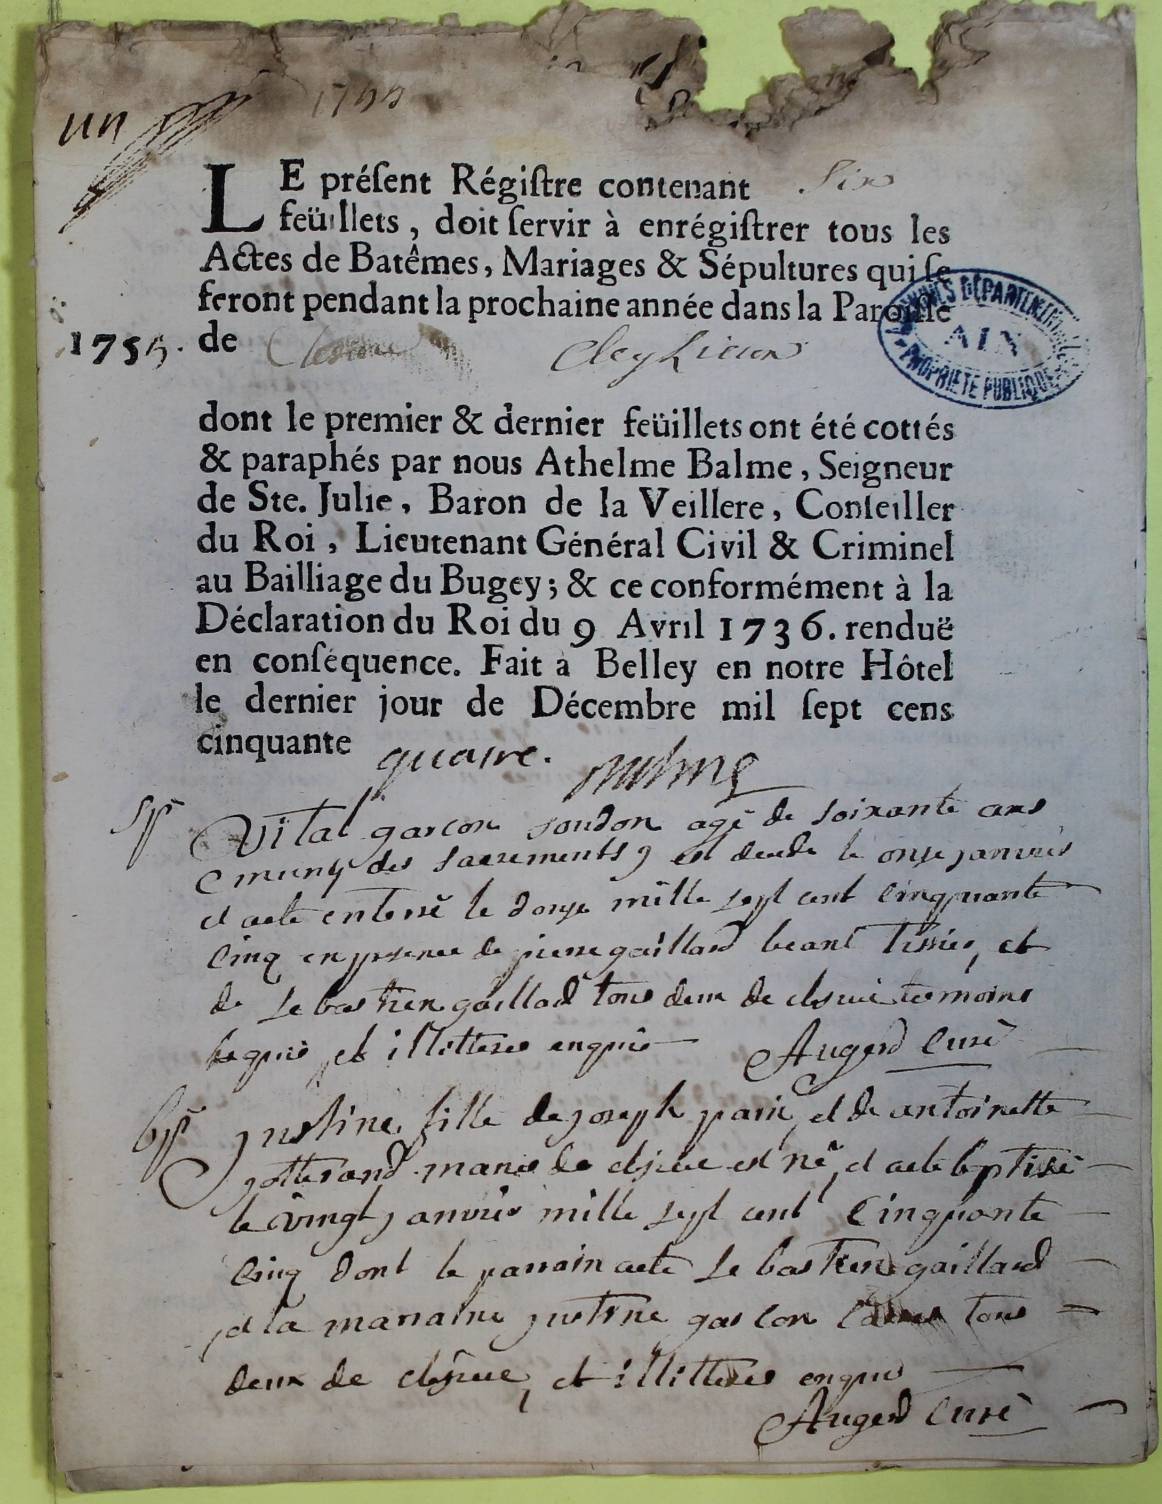 un 1755
LE préſent Régiſtre contenant Six
feüillets, doit ſervir à enrégiſtrer tous les
Actes de Batêmes, Mariages & Sépultures qui ſe
feront pendant la prochaine année dans la Paroiſſe
1755. de Cleyzieu
ARCHIVES DÉPARTEMENTALES
AIN
PROPRIÉTÉ PUBLIQUE
dont le premier & dernier feüillets ont été cottés
& paraphés par nous Athelme Balme, Seigneur
de Ste. Julie, Baron de la Veillere, Conſeiller
du Roi, Lieutenant Général Civil & Criminel
au Bailliage du Bugey; & ce conformément à la
Déclaration du Roi du 9 Avril 1736. renduë
en conſéquence. Fait à Belley en notre Hôtel
le dernier jour de Décembre mil ſept cens
cinquante quatre. Balme
Vital garcon agé de soixante ans
muny des sacrements est decedé le onze janvier
et aeté enterré le donze mille sept cent cinquante
cinq en presence de pierre gaillard tissier, et
de sebastien gaillard tous deux de temoins
requis et illitteres enquis Augerd curé
justine fille de joseph et de antoinette
mariés de est né et aeté baptisé
le vingt janvier mille sept cent cinquante
cinq dont le parrain aeté sebastien gaillard
et la marraine justine gascon tous
deux de et illitteres enquis
Augerd curé